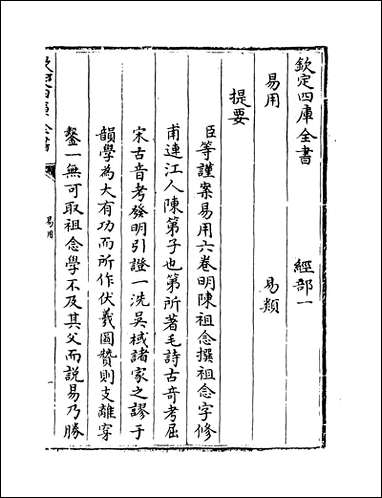 欽定四庫全書　經部一
易用　易類
提要
臣等謹案易用六卷明陳祖念撰祖念字修
甫連江人陳第子也第所著毛詩古音考屈
宋古音考發明引證一洗吳棫諸家之謬于
韻學為大有功而所作伏羲圖贊則支離穿
鑿一無可取祖念學不及其父而說易乃勝
易用